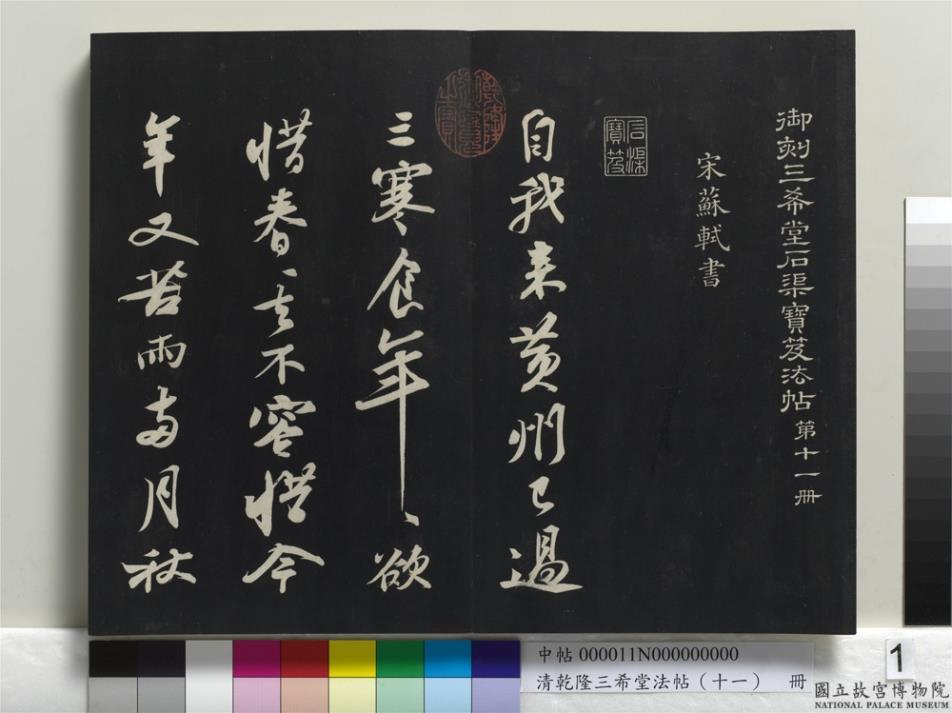 御刻三希堂石渠寶笈法帖第十一冊
宋蘇軾書
石渠寶笈
自我来黄州已過
三寒食年〻欲
惜春〻去不容惜今
年又苦雨兩月秋
中帖 000011N000000000
清乾隆三希堂法帖(十一) 冊
1
國立故宮博物院
NATIONAL PALACE MUSEUM